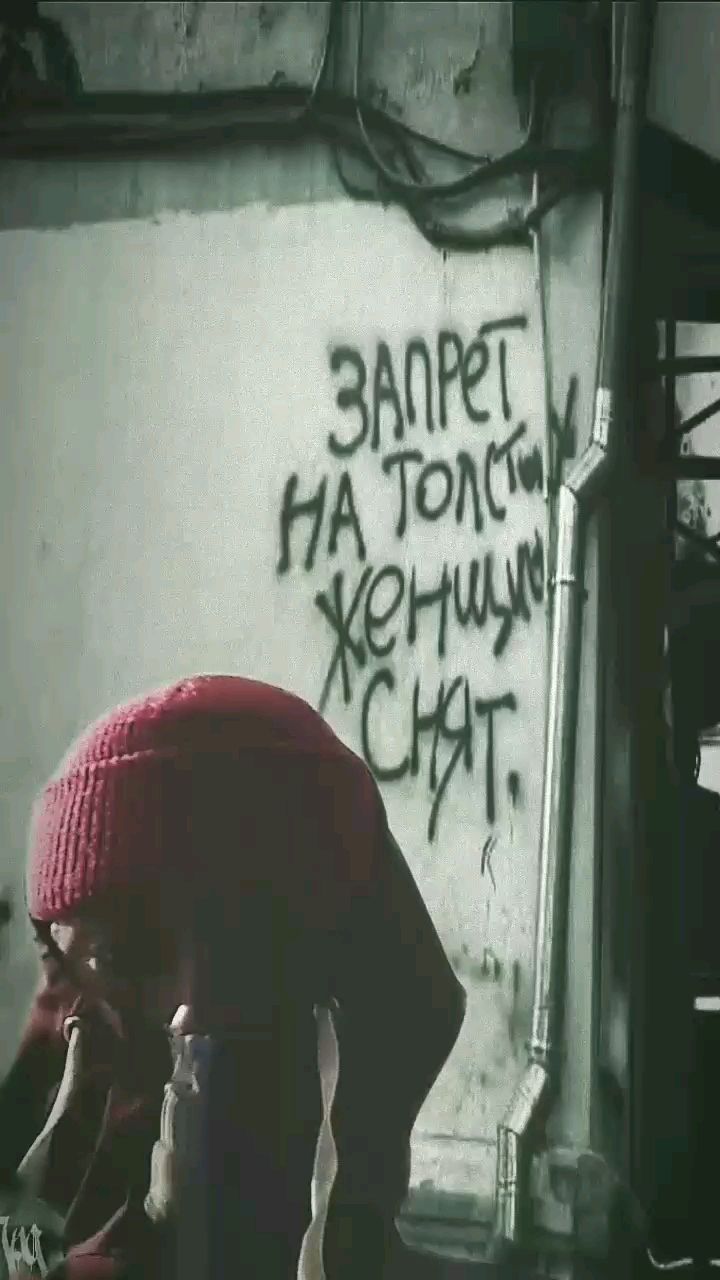 ЗАПРЕТ
НА ТОЛСТЫХ
ЖЕНЩИН
СНЯТ.